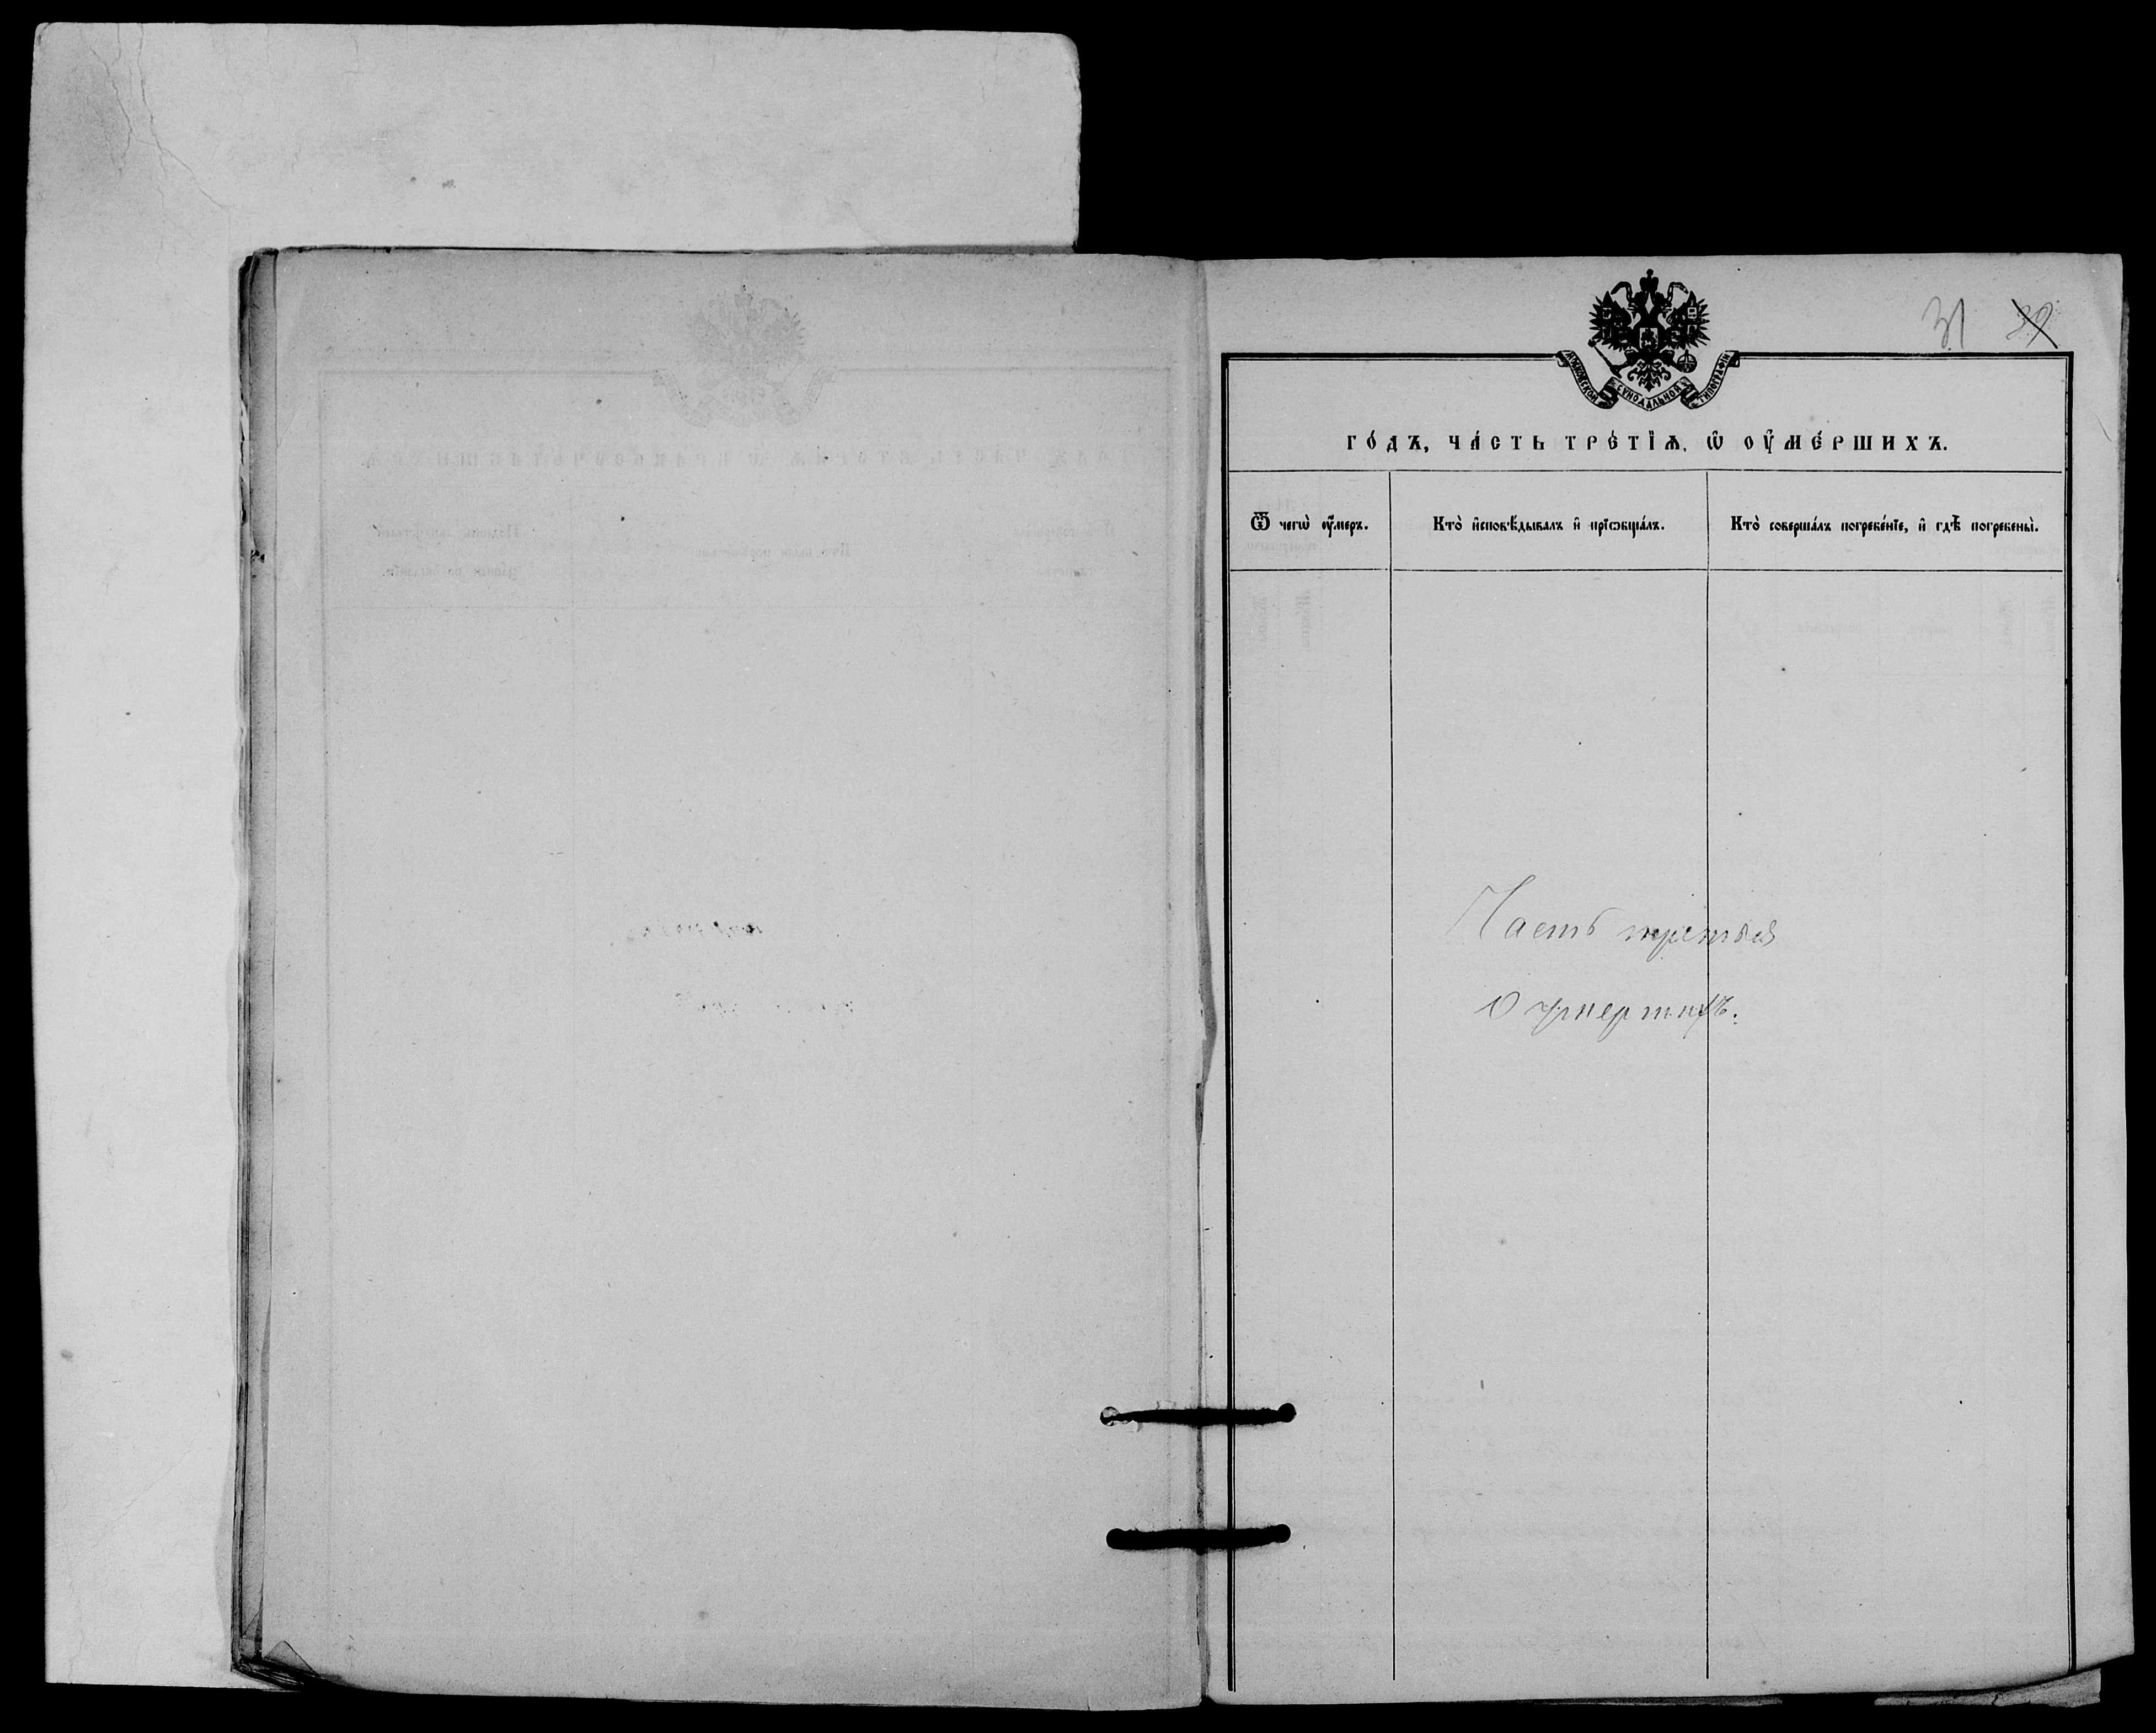 31 39
МОСКОВСКОЙ СѴНОДАЛЬНОЙ ТИПОГРАФІИ
ГО́ДЪ, ЧА́СТЬ ТРЕ́ТІѦ, Ѡ҆ ОУ҆МЕ́РШИХЪ.
Ѿ чегѡ̀ оу҆́меръ.
Кто̀ и҆сповѣ́дывалъ и҆ прїѡбща́лъ.
Кто̀ соверша́лъ погребе́нїе, и҆ гдѣ̀ погребены̀.
Часть третья
О умершихъ.